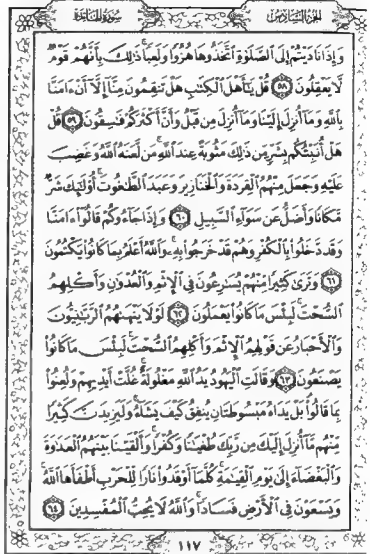 الجزء السادس
سورة المائدة
وَإِذَا نَادَيْتُمْ إِلَى ٱلصَّلَوٰةِ ٱتَّخَذُوهَا هُزُوًا وَلَعِبًا ۚ ذَٰلِكَ بِأَنَّهُمْ قَوْمٌ
لَّا يَعْقِلُونَ ٥٨ قُلْ يَٰٓأَهْلَ ٱلْكِتَٰبِ هَلْ تَنقِمُونَ مِنَّآ إِلَّآ أَنْ ءَامَنَّا
بِٱللَّهِ وَمَآ أُنزِلَ إِلَيْنَا وَمَآ أُنزِلَ مِن قَبْلُ وَأَنَّ أَكْثَرَكُمْ فَٰسِقُونَ ٥٩ قُلْ
هَلْ أُنَبِّئُكُم بِشَرٍّ مِّن ذَٰلِكَ مَثُوبَةً عِندَ ٱللَّهِ ۚ مَن لَّعَنَهُ ٱللَّهُ وَغَضِبَ
عَلَيْهِ وَجَعَلَ مِنْهُمُ ٱلْقِرَدَةَ وَٱلْخَنَازِيرَ وَعَبَدَ ٱلطَّٰغُوتَ ۚ أُو۟لَٰٓئِكَ شَرٌّ
مَّكَانًا وَأَضَلُّ عَن سَوَآءِ ٱلسَّبِيلِ ٦٠ وَإِذَا جَآءُوكُمْ قَالُوٓا۟ ءَامَنَّا
وَقَد دَّخَلُوا۟ بِٱلْكُفْرِ وَهُمْ قَدْ خَرَجُوا۟ بِهِۦ ۚ وَٱللَّهُ أَعْلَمُ بِمَا كَانُوا۟ يَكْتُمُونَ
٦١ وَتَرَىٰ كَثِيرًا مِّنْهُمْ يُسَٰرِعُونَ فِى ٱلْإِثْمِ وَٱلْعُدْوَٰنِ وَأَكْلِهِمُ
ٱلسُّحْتَ ۚ لَبِئْسَ مَا كَانُوا۟ يَعْمَلُونَ ٦٢ لَوْلَا يَنْهَىٰهُمُ ٱلرَّبَّٰنِيُّونَ
وَٱلْأَحْبَارُ عَن قَوْلِهِمُ ٱلْإِثْمَ وَأَكْلِهِمُ ٱلسُّحْتَ ۚ لَبِئْسَ مَا كَانُوا۟
يَصْنَعُونَ ٦٣ وَقَالَتِ ٱلْيَهُودُ يَدُ ٱللَّهِ مَغْلُولَةٌ ۚ غُلَّتْ أَيْدِيهِمْ وَلُعِنُوا۟
بِمَا قَالُوا۟ ۘ بَلْ يَدَاهُ مَبْسُوطَتَانِ يُنفِقُ كَيْفَ يَشَآءُ ۚ وَلَيَزِيدَنَّ كَثِيرًا
مِّنْهُم مَّآ أُنزِلَ إِلَيْكَ مِن رَّبِّكَ طُغْيَٰنًا وَكُفْرًا ۚ وَأَلْقَيْنَا بَيْنَهُمُ ٱلْعَدَٰوَةَ
وَٱلْبَغْضَآءَ إِلَىٰ يَوْمِ ٱلْقِيَٰمَةِ ۚ كُلَّمَآ أَوْقَدُوا۟ نَارًا لِّلْحَرْبِ أَطْفَأَهَا ٱللَّهُ ۚ
وَيَسْعَوْنَ فِى ٱلْأَرْضِ فَسَادًا ۚ وَٱللَّهُ لَا يُحِبُّ ٱلْمُفْسِدِينَ ٦٤
١١٧